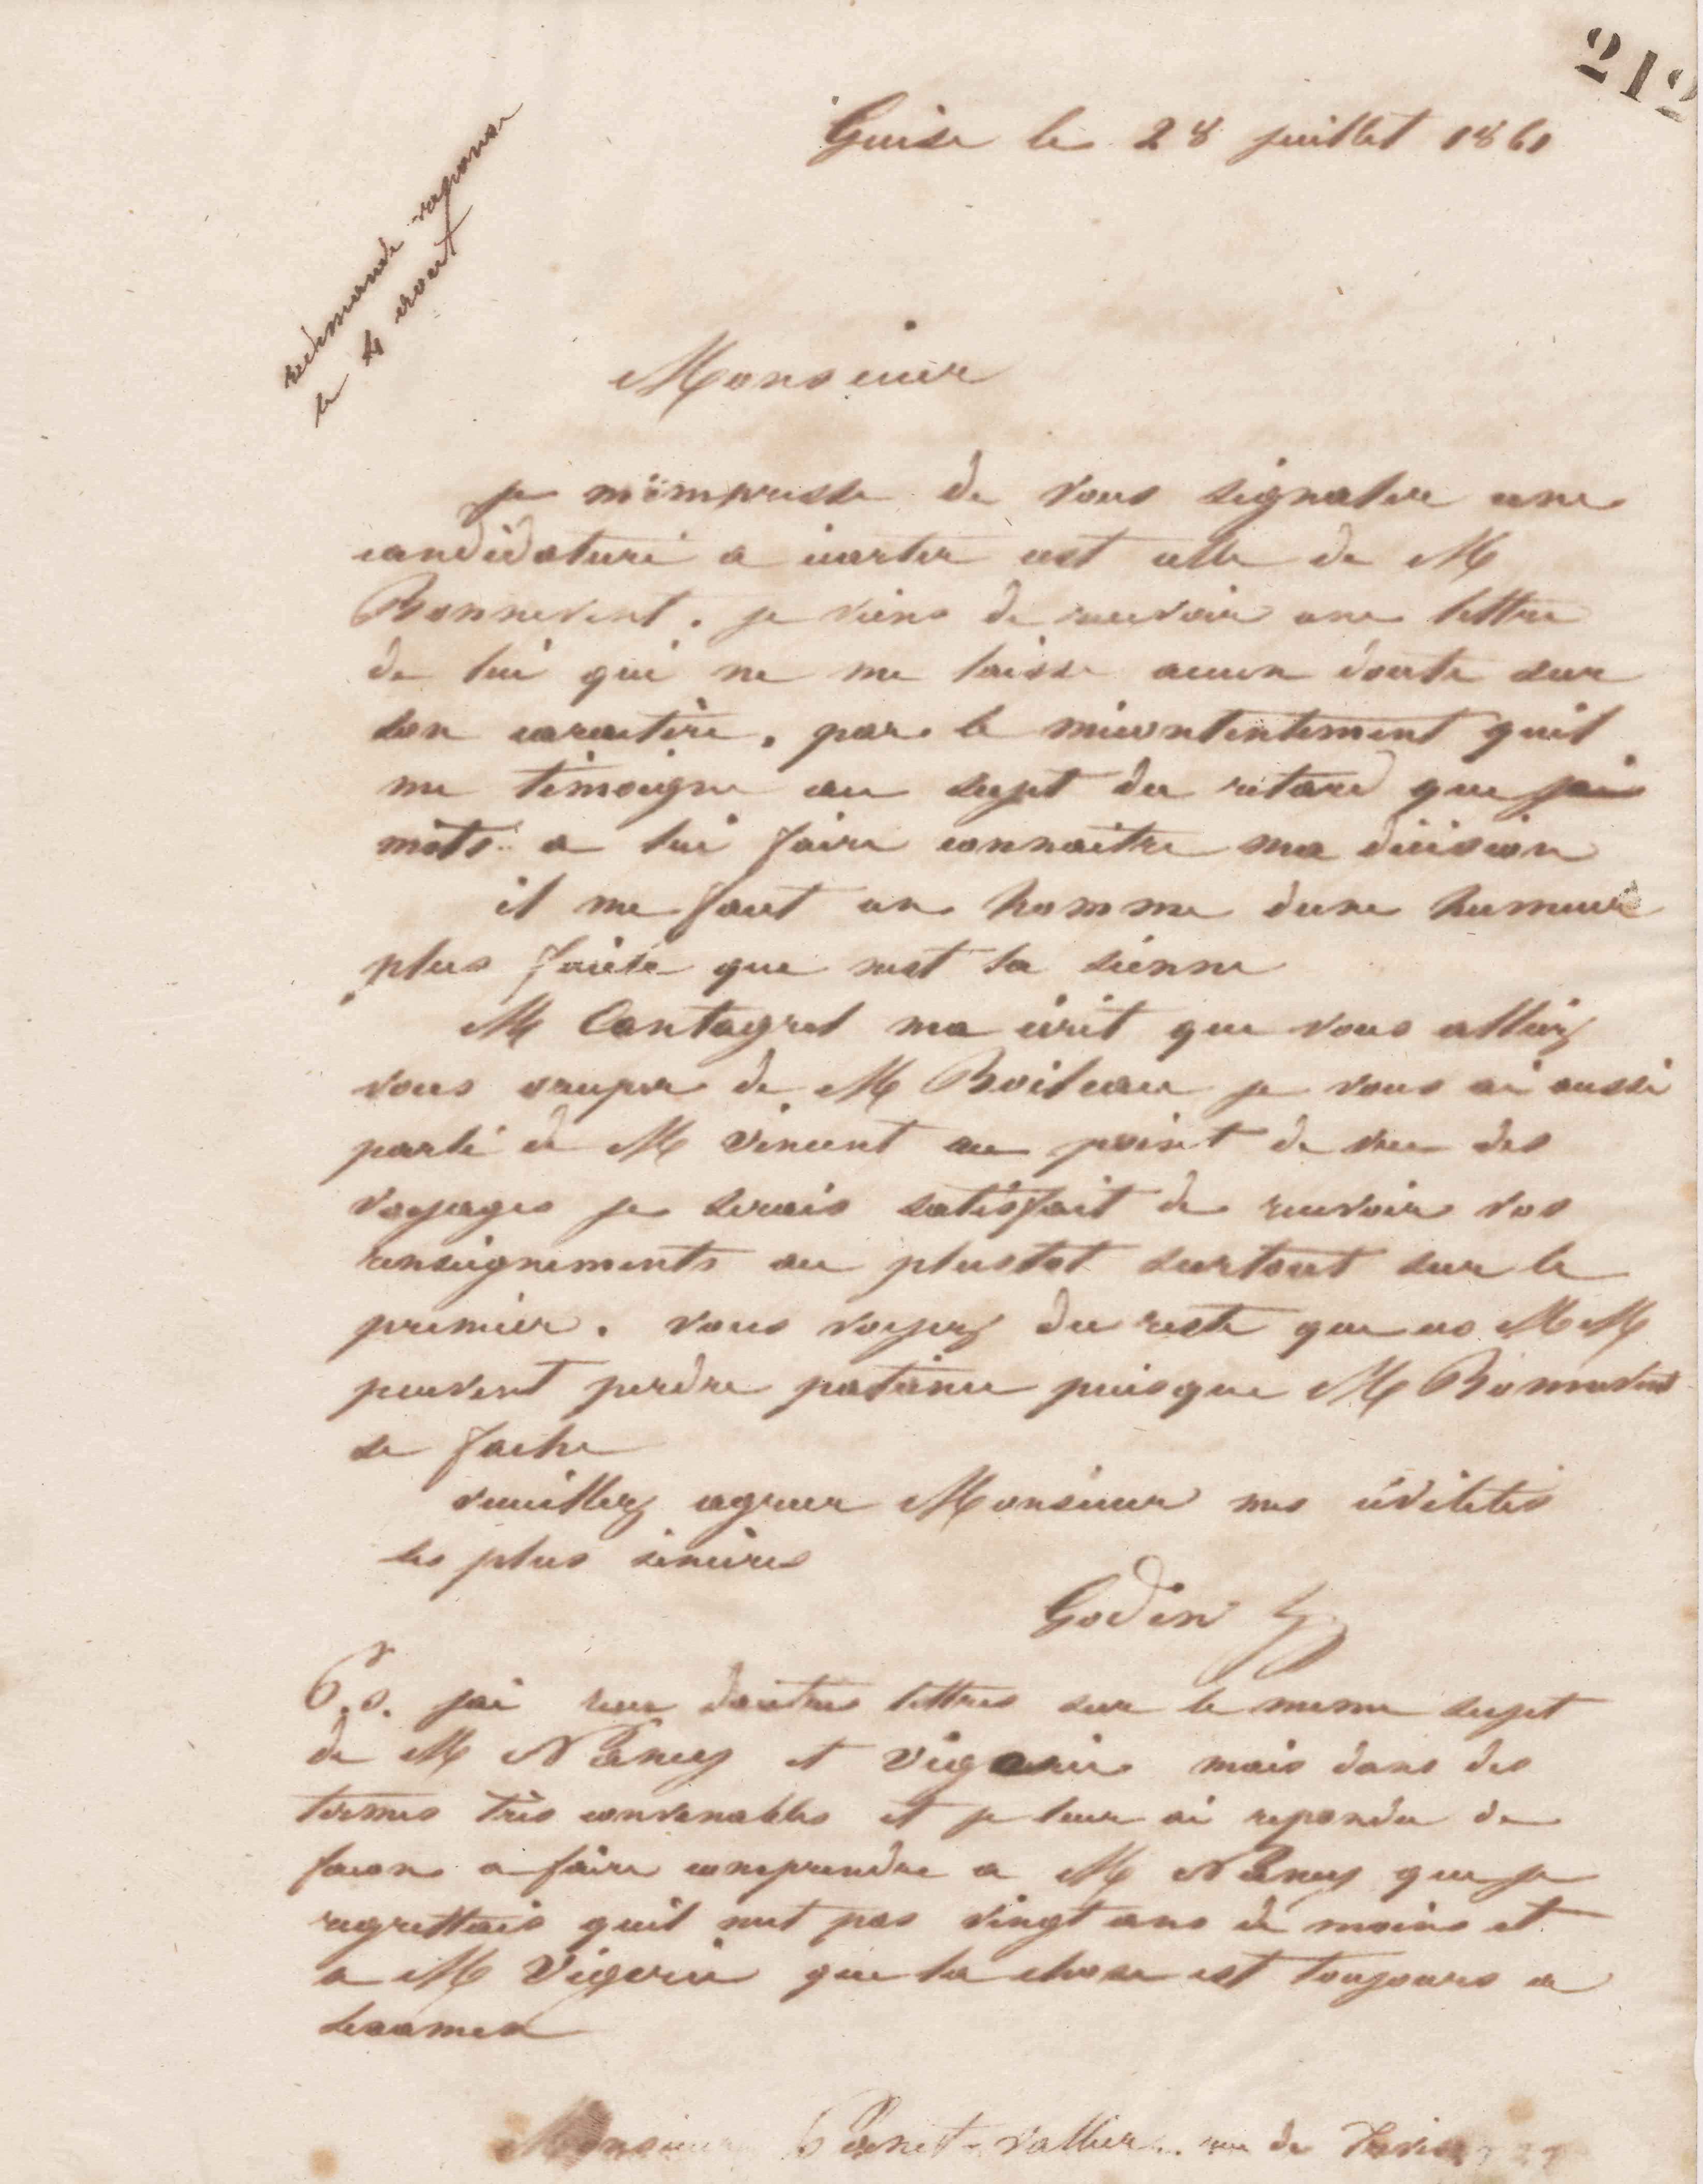 212
Guise le 28 juillet 1861
redemandé reponse
le 4 aout
Monsieur
je m'empresse de vous signaler une
candidature a ecarter cest celle de M
Bonnevent. je viens de recevoir une lettre
de lui qui ne me laisse aucun doute sur
son caractère. par le mecontentement quil
me témoigne au sujet du retard que jai
mits a lui faire connaitre ma décision
il me faut un homme dune humeur
plus facile que nest la sienne
M Cantagrel ma écrit que vous alliez
vous occuper de M Boileau je vous ai aussi
parlé de M Vincent au point de vue des
voyages je serais satisfait de recevoir vos
renseignements au plustot surtout sur le
premier. vous voyez du reste que ces MM
peuvent perdre patience puisque M Bonnevent
se fache
veuillez agreer Monsieur mes civilités
les plus sincères
Godin
P.S. jai recu dautres lettres sur le meme sujet
de M Nancy et Vigerie mais dans des
termes très convenables et je leur ai repondu de
facon a faire comprendre a M Nancy que je
regrettais quil nut pas vingt ans de moins et
a M Vigerie que la chose est toujours a
lexamen
Monsieur rue de